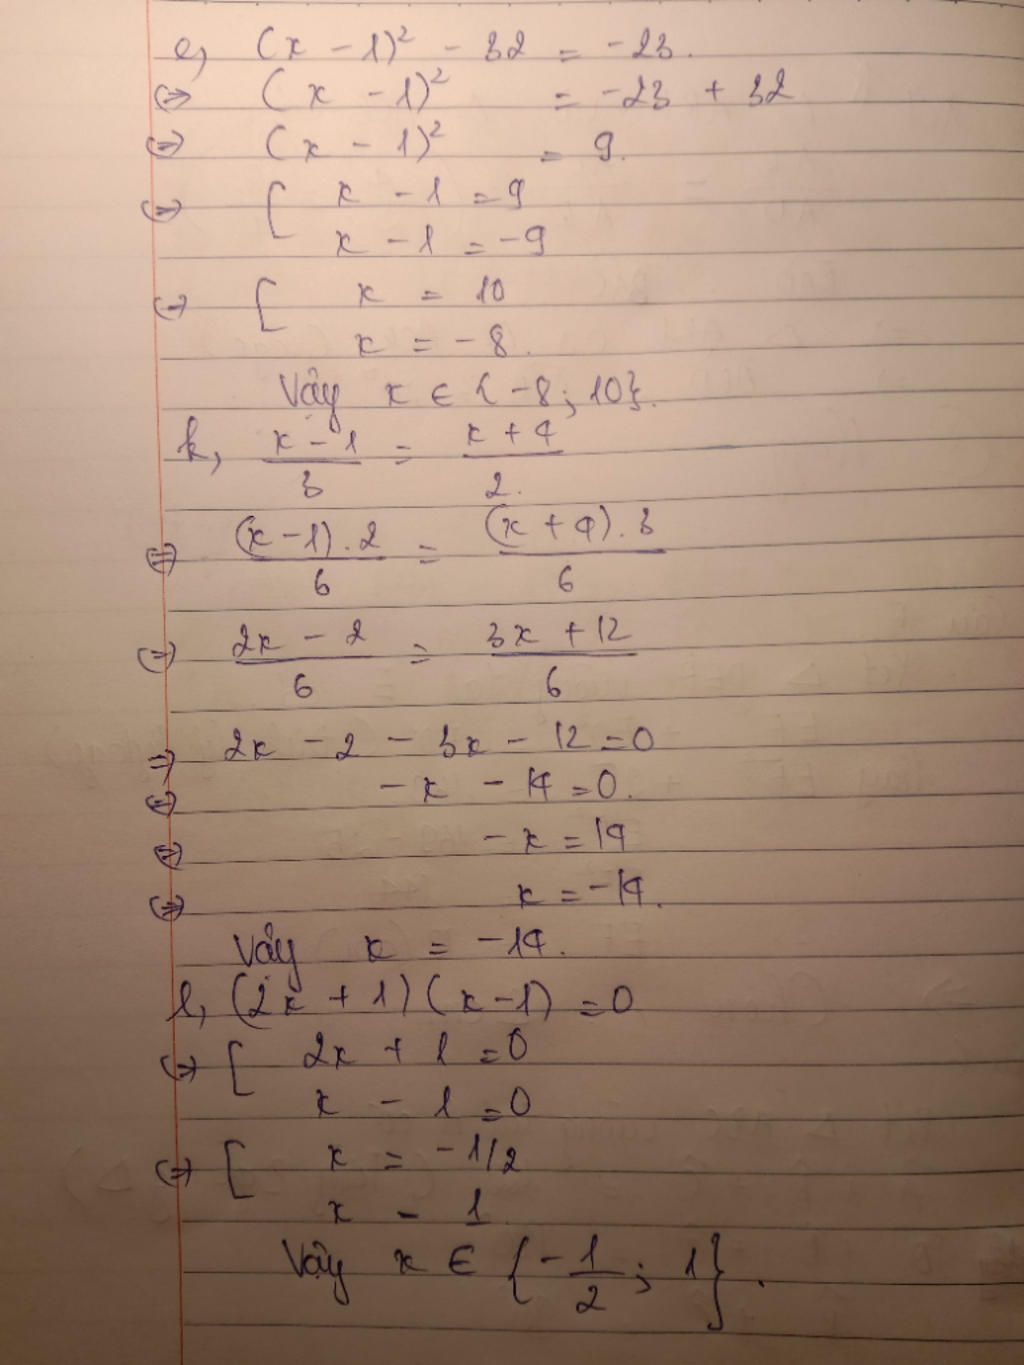 e, (x - 1)² - 32 = -23.
⇔ (x - 1)² = -23 + 32
⇔ (x - 1)² = 9.
⇔ [ x - 1 = 9
x - 1 = -9
⇔ [ x = 10
x = -8.
Vậy x ∈ {-8; 10}.
k, (x - 1)/3 = (x + 4)/2.
⇔ (x - 1).2/6 = (x + 4).3/6
⇔ (2x - 2)/6 = (3x + 12)/6
⇒ 2x - 2 - 3x - 12 = 0
⇔ -x - 14 = 0.
⇔ -x = 14
⇔ x = -14.
Vậy x = -14.
l, (2x + 1)(x - 1) = 0
⇔ [ 2x + 1 = 0
x - 1 = 0
⇔ [ x = -1/2
x - 1
Vậy x ∈ {-1/2; 1}.